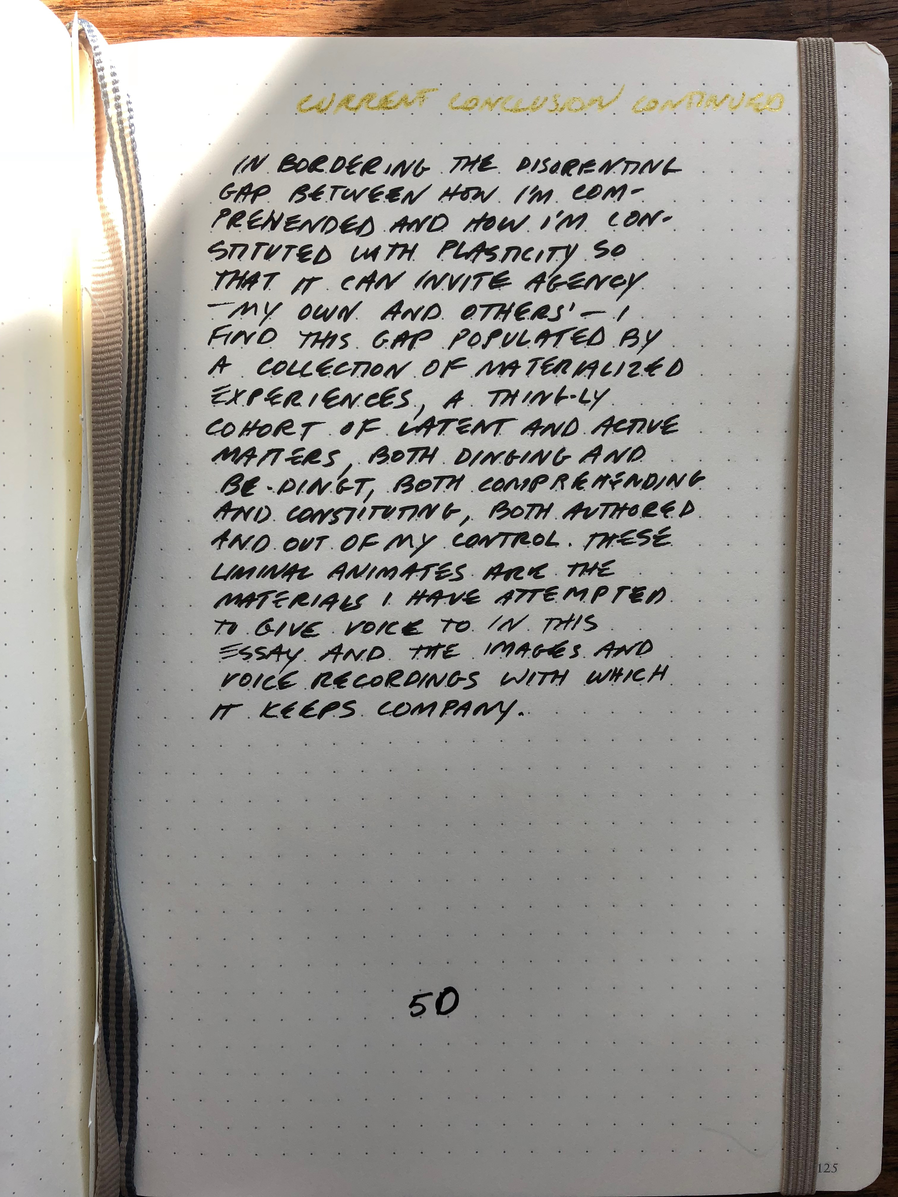 CURRENT CONCLUSION CONTINUED
IN BORDERING THE DISORENTING
GAP BETWEEN HOW I'M COM-
PREHENDED AND HOW I'M CON-
STITUTED WITH PLASTICITY SO
THAT IT CAN INVITE AGENCY
—MY OWN AND OTHERS'— I
FIND THIS GAP POPULATED BY
A COLLECTION OF MATERIALIZED
EXPERIENCES, A THING-LY
COHORT OF LATENT AND ACTIVE
MATTERS, BOTH DINGING AND
BE-DINGT, BOTH COMPREHENDING
AND CONSTITUTING, BOTH AUTHORED
AND OUT OF MY CONTROL. THESE
LIMINAL ANIMATES ARE THE
MATERIALS I HAVE ATTEMPTED
TO GIVE VOICE TO IN THIS
ESSAY AND THE IMAGES AND
VOICE RECORDINGS WITH WHICH
IT KEEPS COMPANY.
50
125